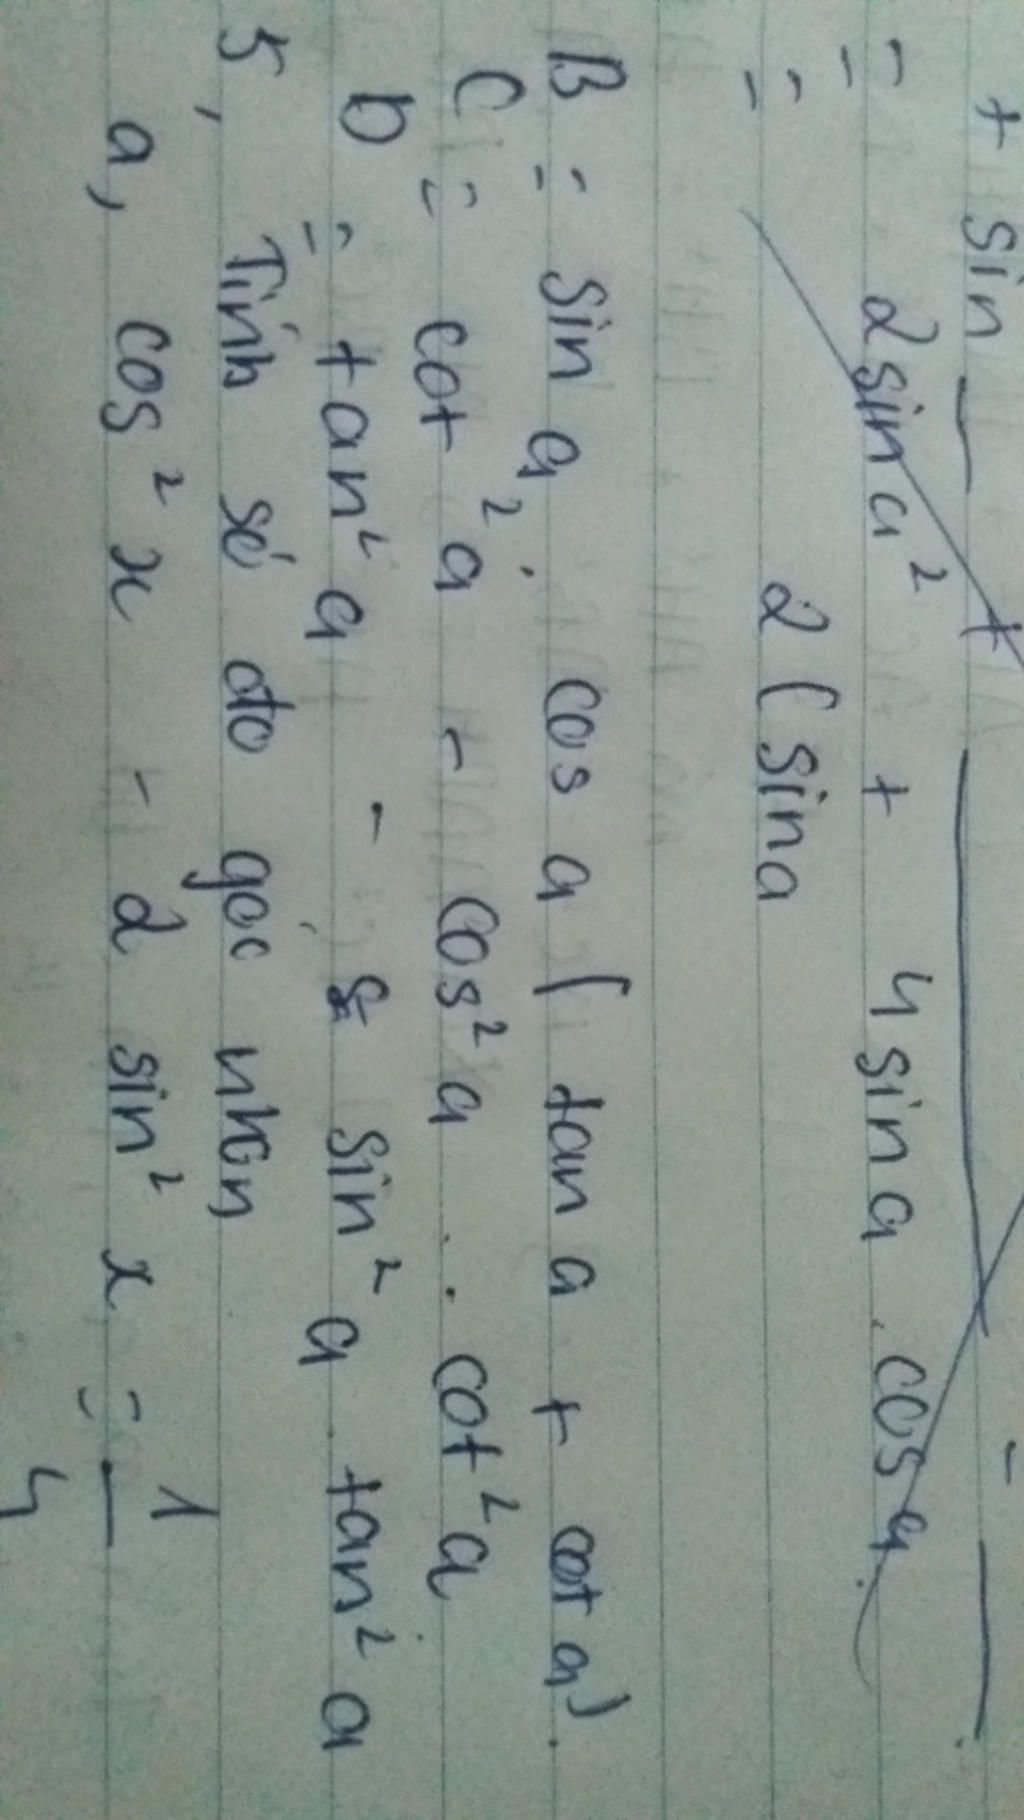 + sin
= 2 sin a² + 4 sin a . cos a
= 2 ( sin a
B = sin a . cos a ( tan a + cot a ) .
C = cot² a - cos² a . cot² a
D = tan² a - sin² a tan² a
5, Tính số đo góc nhọn
a, cos² x - 2 sin² x = 1/4